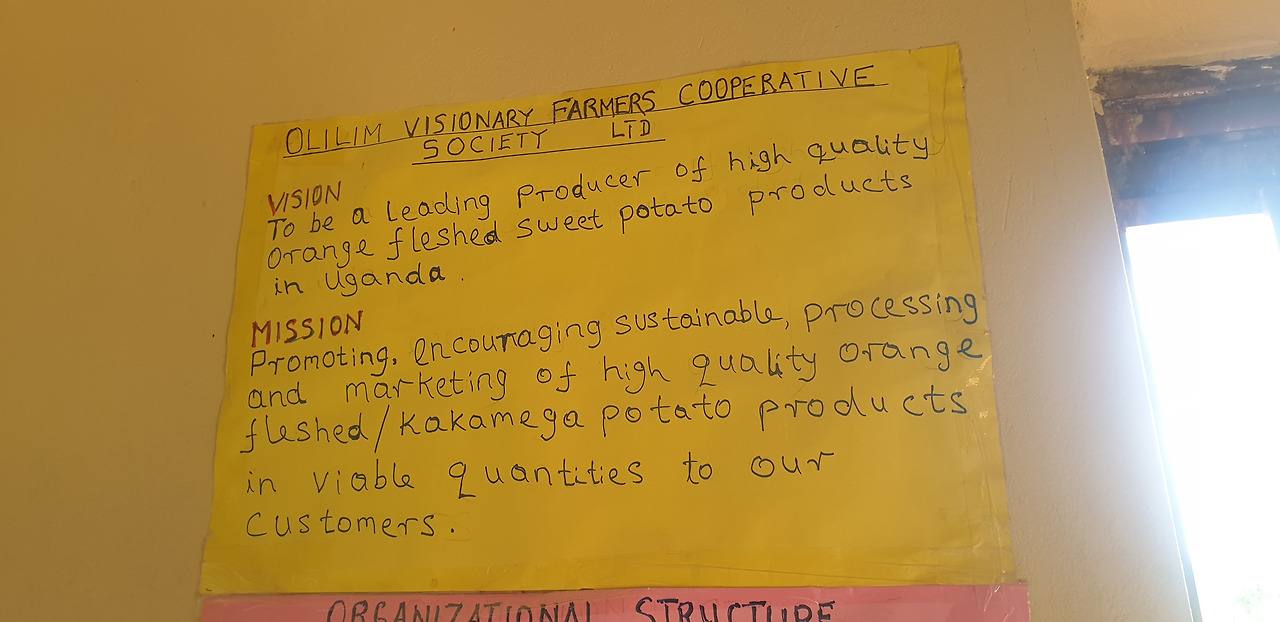 OLILIM VISIONARY FARMERS COOPERATIVE
SOCIETY LTD
VISION
To be a Leading Producer of high quality
Orange fleshed sweet potato products
in Uganda.
MISSION
Promoting, encouraging sustainable, processing
and marketing of high quality orange
fleshed/Kakamega potato products
in viable quantities to our
Customers.
ORGANIZATIONAL STRUCTURE